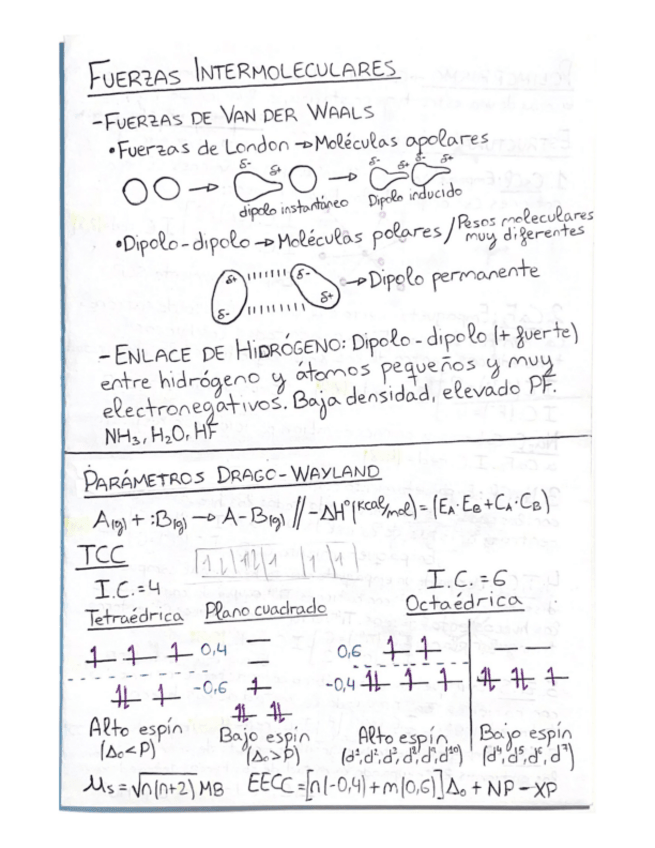 FUERZAS INTERMOLECULARES
- FUERZAS DE VAN DER WAALS
• Fuerzas de London → Moléculas apolares
δ- δ+ δ- δ+ δ- δ+
dipolo instantáneo Dipolo inducido
• Dipolo-dipolo → Moléculas polares / Pesos moleculares
muy diferentes
δ+ δ- → Dipolo permanente
δ- δ+
- ENLACE DE HIDRÓGENO: Dipolo-dipolo (+ fuerte)
entre hidrógeno y átomos pequeños y muy
electronegativos. Baja densidad, elevado PF.
NH₃, H₂O, HF
PARÁMETROS DRAGO-WAYLAND
A(g) + :B(g) → A-B(g) // -ΔH°(kcal/mol) = (EA·EB + CA·CB)
TCC
I.C.=4 I.C.=6
Tetraédrica Plano cuadrado Octaédrica
0,4 0,6
-0,6 -0,4
Alto espín Bajo espín Alto espín Bajo espín
(Δo<P) (Δo>P) (d⁴, d⁵, d⁶, d⁷)
μs = √n(n+2) MB EECC = [n(-0,4) + m(0,6)]Δo + NP - XP